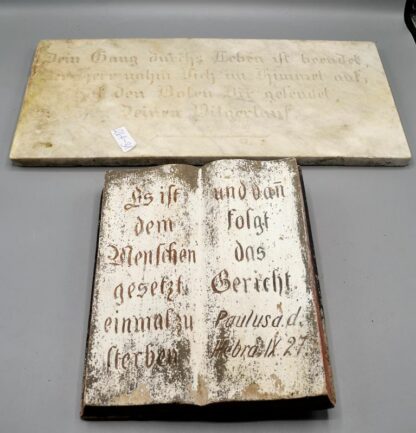 Dein Gang durchs Leben ist beendet
Der Herr nahm Dich im Himmel auf,
den Boten Dir gesendet
Deinen Pilgerlauf
Es ist
dem
Menschen
gesetzt
einmal zu
sterben
und dan̄
folgt
das
Gericht.
Paulus a. d.
Hebrä. IX. 27